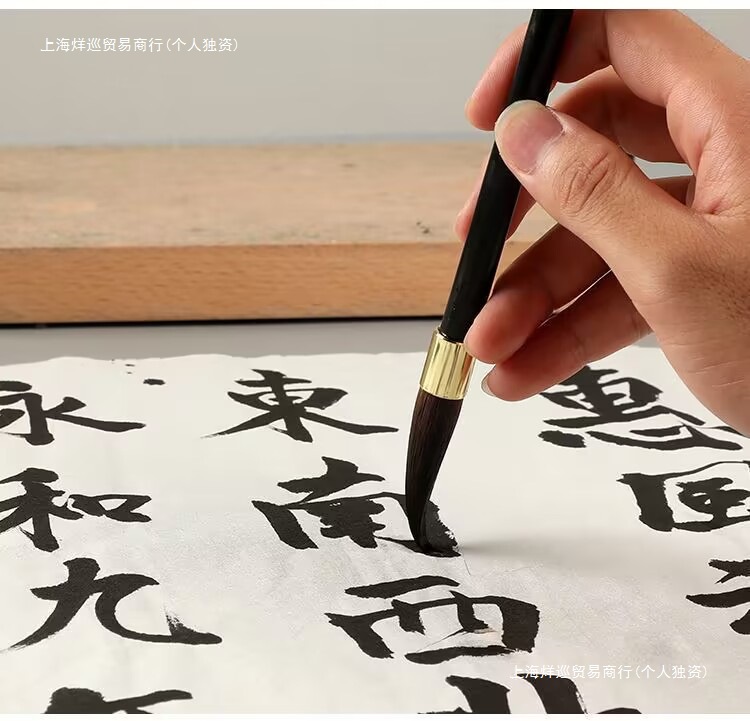 上海烊巡贸易商行(个人独资)
惠国
東南西北
永和九
上海烊巡贸易商行(个人独资)